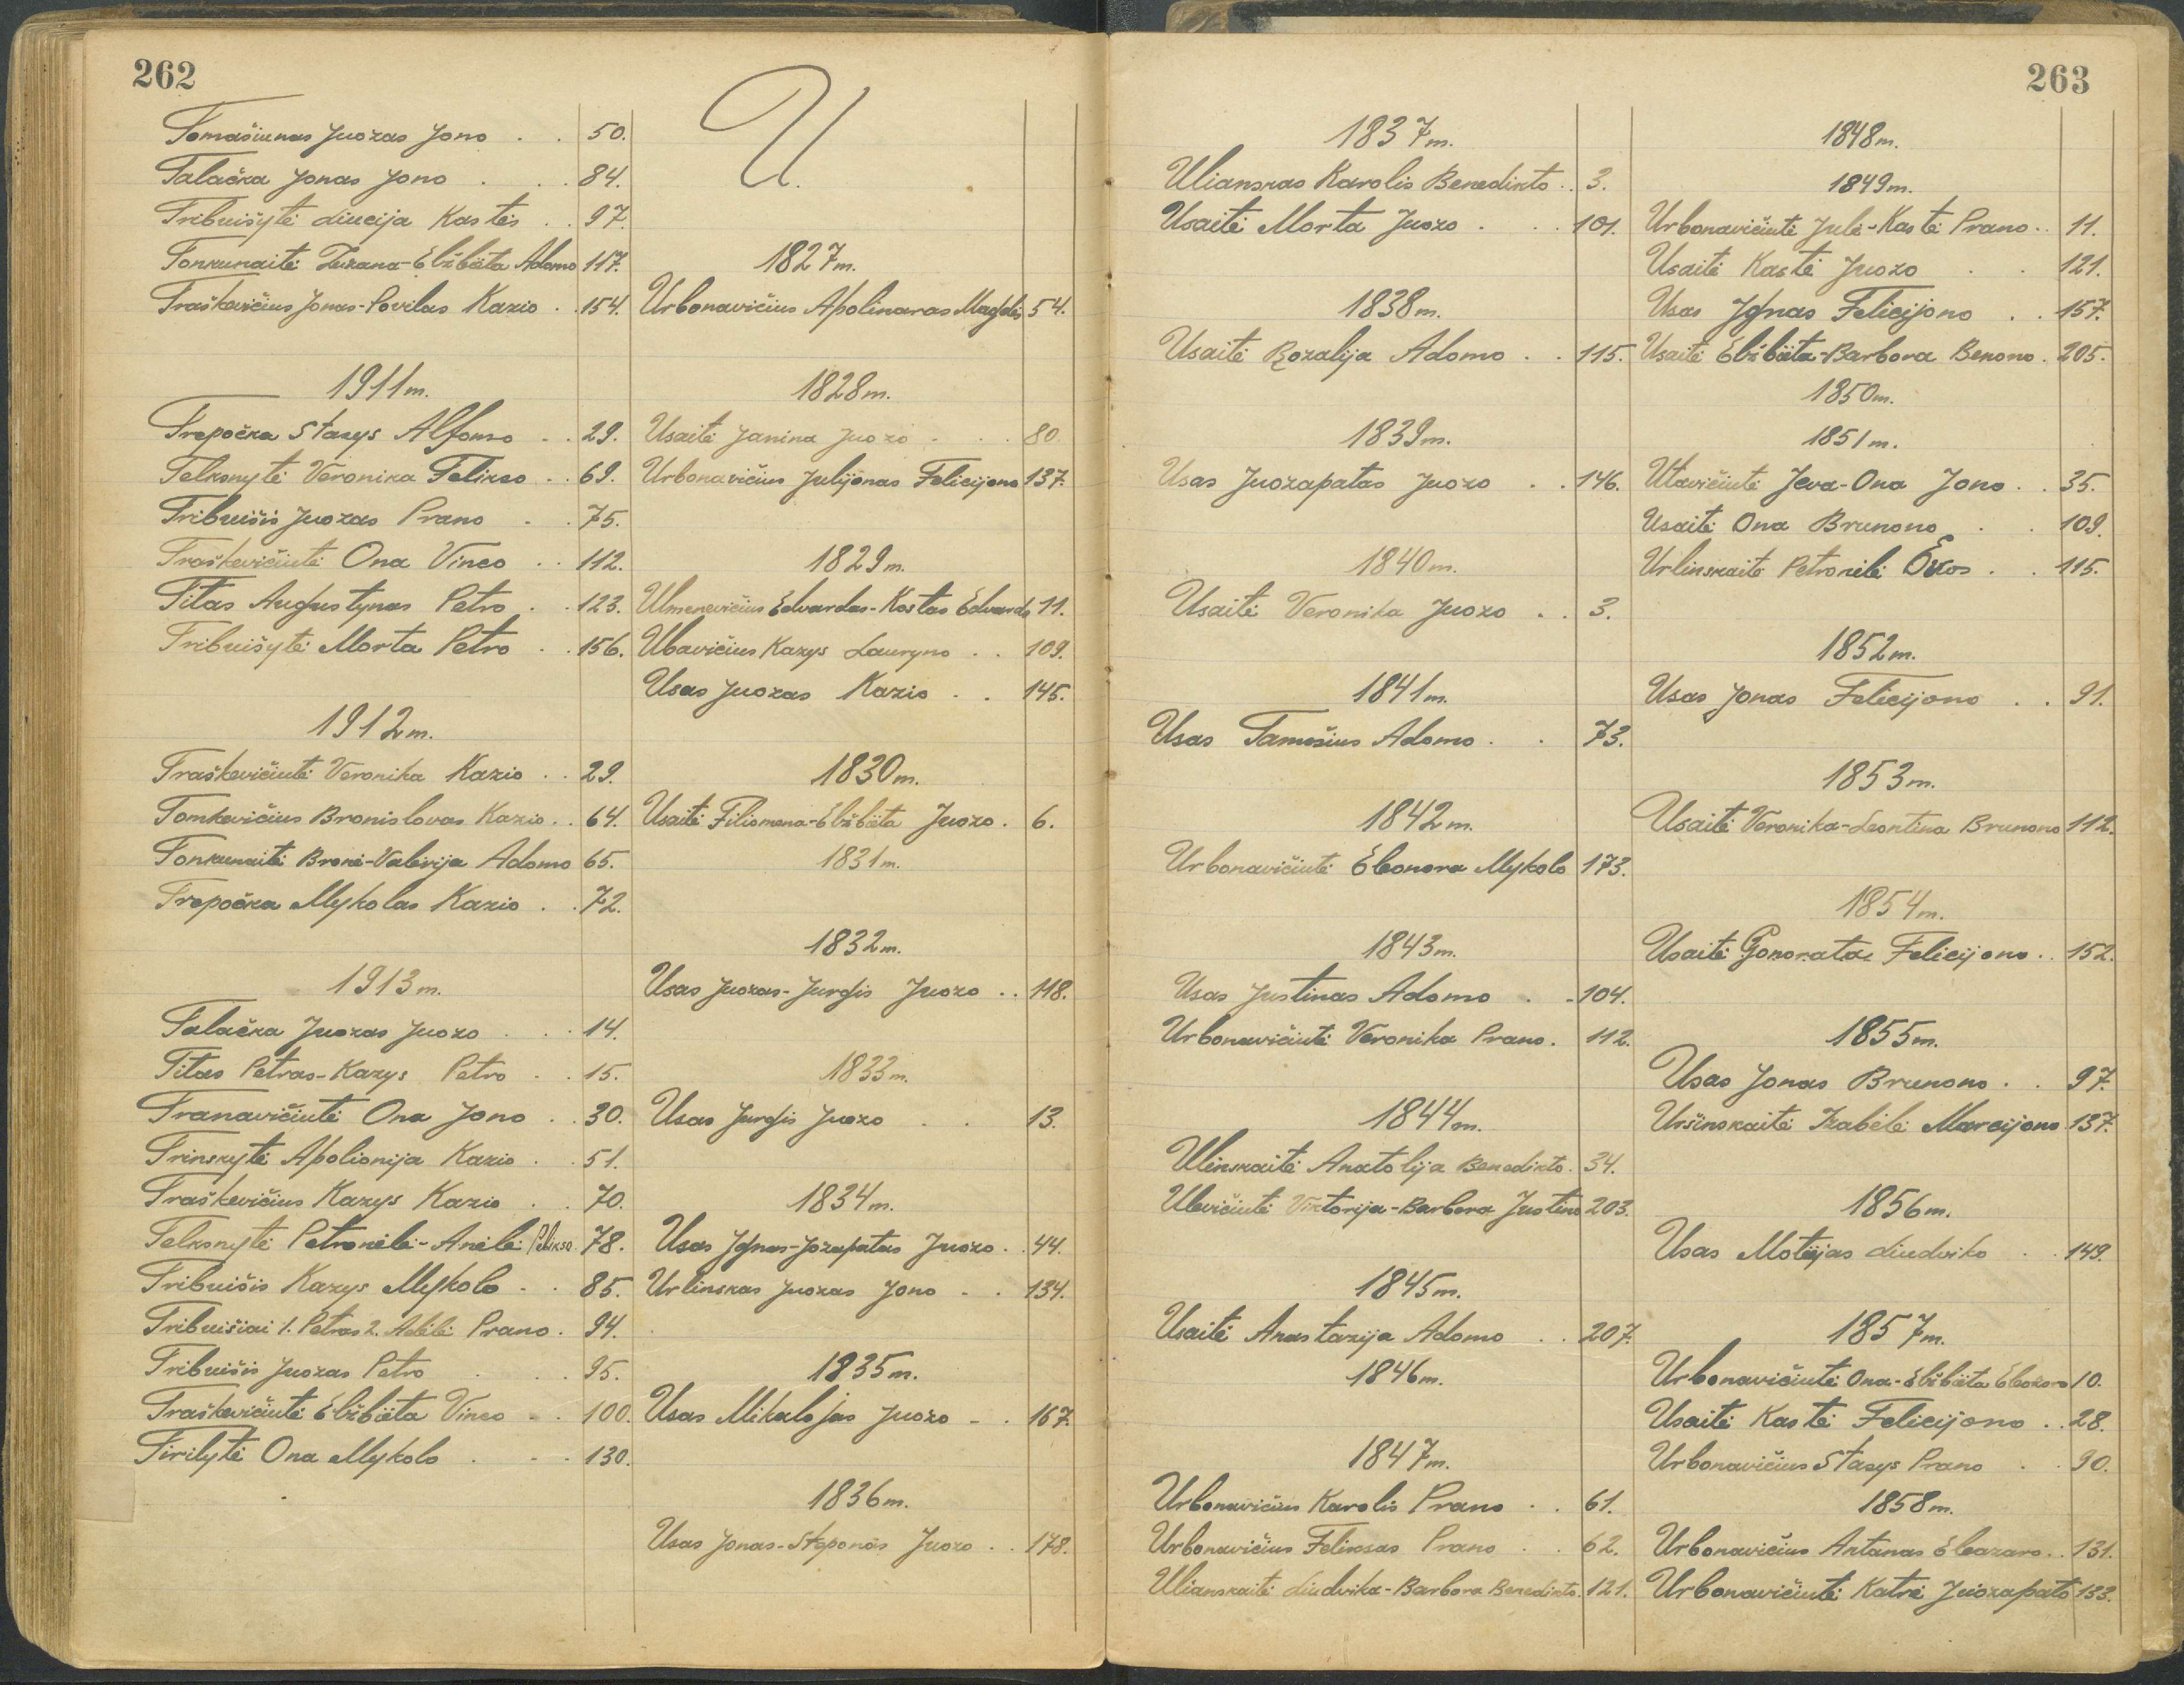 262
Tomašiunas Juozas Jono . . 50.
Talačka Jonas Jono . . . 84.
Tribuišytė Liucija Kastės . . 97.
Tonkunaitė Zuzana-Elžbieta Adomo 117.
Traškevičius Jonas-Povilas Kazio . . 154.
1911m.
Trepočka Stasys Alfonso . . 29.
Telksnytė Veronika Felikso . . 69.
Tribuišis Juozas Prano . . 75.
Traškevičiutė Ona Vinco . . 112.
Titas Augustynas Petro . . 123.
Tribuišytė Morta Petro . . 156.
1912m.
Traškevičiutė Veronika Kazio . . 29.
Tomkevičius Bronislovas Kazio . . 64.
Tonkunaitė Bronė-Valerija Adomo 65.
Trepočka Mykolas Kazio . . 72.
1913m.
Talačka Juozas Juozo . . . 14.
Titas Petras-Kazys Petro . . 15.
Franavičiutė Ona Jono . . 30.
Trinskytė Apolionija Kazio . . 51.
Traškevičius Kazys Kazio . . 70.
Telksnytė Petronėlė-Anėlė Felikso 78.
Tribuišis Kazys Mykolo . . 85.
Tribuišiai 1. Petras 2. Adėlė Prano . 94.
Tribuišis Juozas Petro . . . 95.
Traškevičiutė Elžbieta Vinco . . 100.
Tirilytė Ona Mykolo . . . 130.
U.
1827m.
Urbonavičius Apolinaras Magdės 54.
1828m.
Usaitė Janina Juozo . . . 80
Urbonavičius Julijonas Felicijono 137.
1829m.
Ulmenevičius Edvardas-Kostas Edvardo 11.
Ubavičius Kazys Lauryno . . 109.
Usas Juozas Kazio . . 145.
1830m.
Usaitė Filiomena-Elžbieta Juozo . 6.
1831m.
1832m.
Usas Juozas-Jurgis Juozo . . 118.
1833m.
Usas Jurgis Juozo . . 13.
1834m.
Usas Ignas-Jozapatas Juozo . . 44.
Urlinskas Juozas Jono . . 134.
1835m.
Usas Mikalojas Juozo . . 167.
1836m.
Usas Jonas-Steponas Juozo . . 178.
263
1837m.
Ulianskas Karolis Benedikto . . 3.
Usaitė Morta Juozo . . . 101.
1838m.
Usaitė Rozalija Adomo . . 115.
1839m.
Usas Juozapatas Juozo . . 146.
1840m.
Usaitė Veronika Juozo . . 3.
1841m.
Usas Tamošius Adomo . . 73.
1842m.
Urbonavičiutė Eleonora Mykolo 173.
1843m.
Usas Justinas Adomo . . 104.
Urbonavičiutė Veronika Prano . 112.
1844m.
Ulinskaitė Anatolija Benedikto . 34.
Ulevičiutė Viktorija-Barbora Justino 203.
1845m.
Usaitė Anastazija Adomo . . 207.
1846m.
1847m.
Urbonavičius Karolis Prano . . 61.
Urbonavičius Feliksas Prano . . 62.
Ulianskaitė Liudvika-Barbora Benedikto . 121.
1848m.
1849m.
Urbonavičiutė Julė-Kastė Prano . . 11.
Usaitė Kastė Juozo . . 121.
Usas Ignas Felicijono . . 157.
Usaitė Elžbieta-Barbora Benono . 205.
1850m.
1851m.
Utavičiutė Jeva-Ona Jono . . 35.
Usaitė Ona Brunono . . 109.
Urlinskaitė Petronėlė . . 115.
1852m.
Usas Jonas Felicijono . . 91.
1853m.
Usaitė Veronika-Leontina Brunono 112.
1854m.
Usaitė Gonorata Felicijono . . 152.
1855m.
Usas Jonas Brunono . . 97.
Uršinskaitė Izabėlė Marcijono 137.
1856m.
Usas Motiejas Liudviko . . 149.
1857m.
Urbonavičiutė Ona-Elžbieta 10.
Usaitė Kastė Felicijono . . 28.
Urbonavičius Stasys Prano . . 90.
1858m.
Urbonavičius Antanas Eleazaro . . 131.
Urbonavičiutė Katrė Juozapato 133.